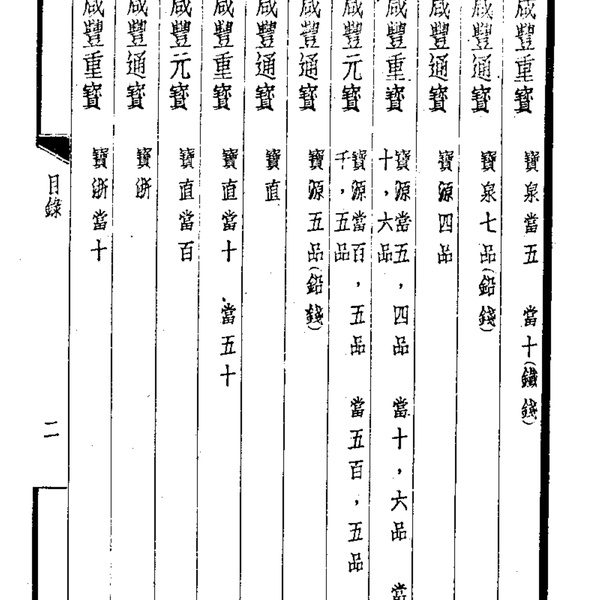 咸豐重寶 寶泉當五 當十(鐵錢)
咸豐通寶 寶泉七品(鉛錢)
咸豐通寶 寶源四品
咸豐重寶 寶源當五,四品 當十,六品 當
十,六品
咸豐元寶 寶源當百,五品 當五百,五品
千,五品
咸豐通寶 寶源五品(鉛錢)
咸豐通寶 寶直
咸豐重寶 寶直當十 當五十
咸豐元寶 寶直當百
咸豐通寶 寶浙
咸豐重寶 寶浙當十
目錄 二